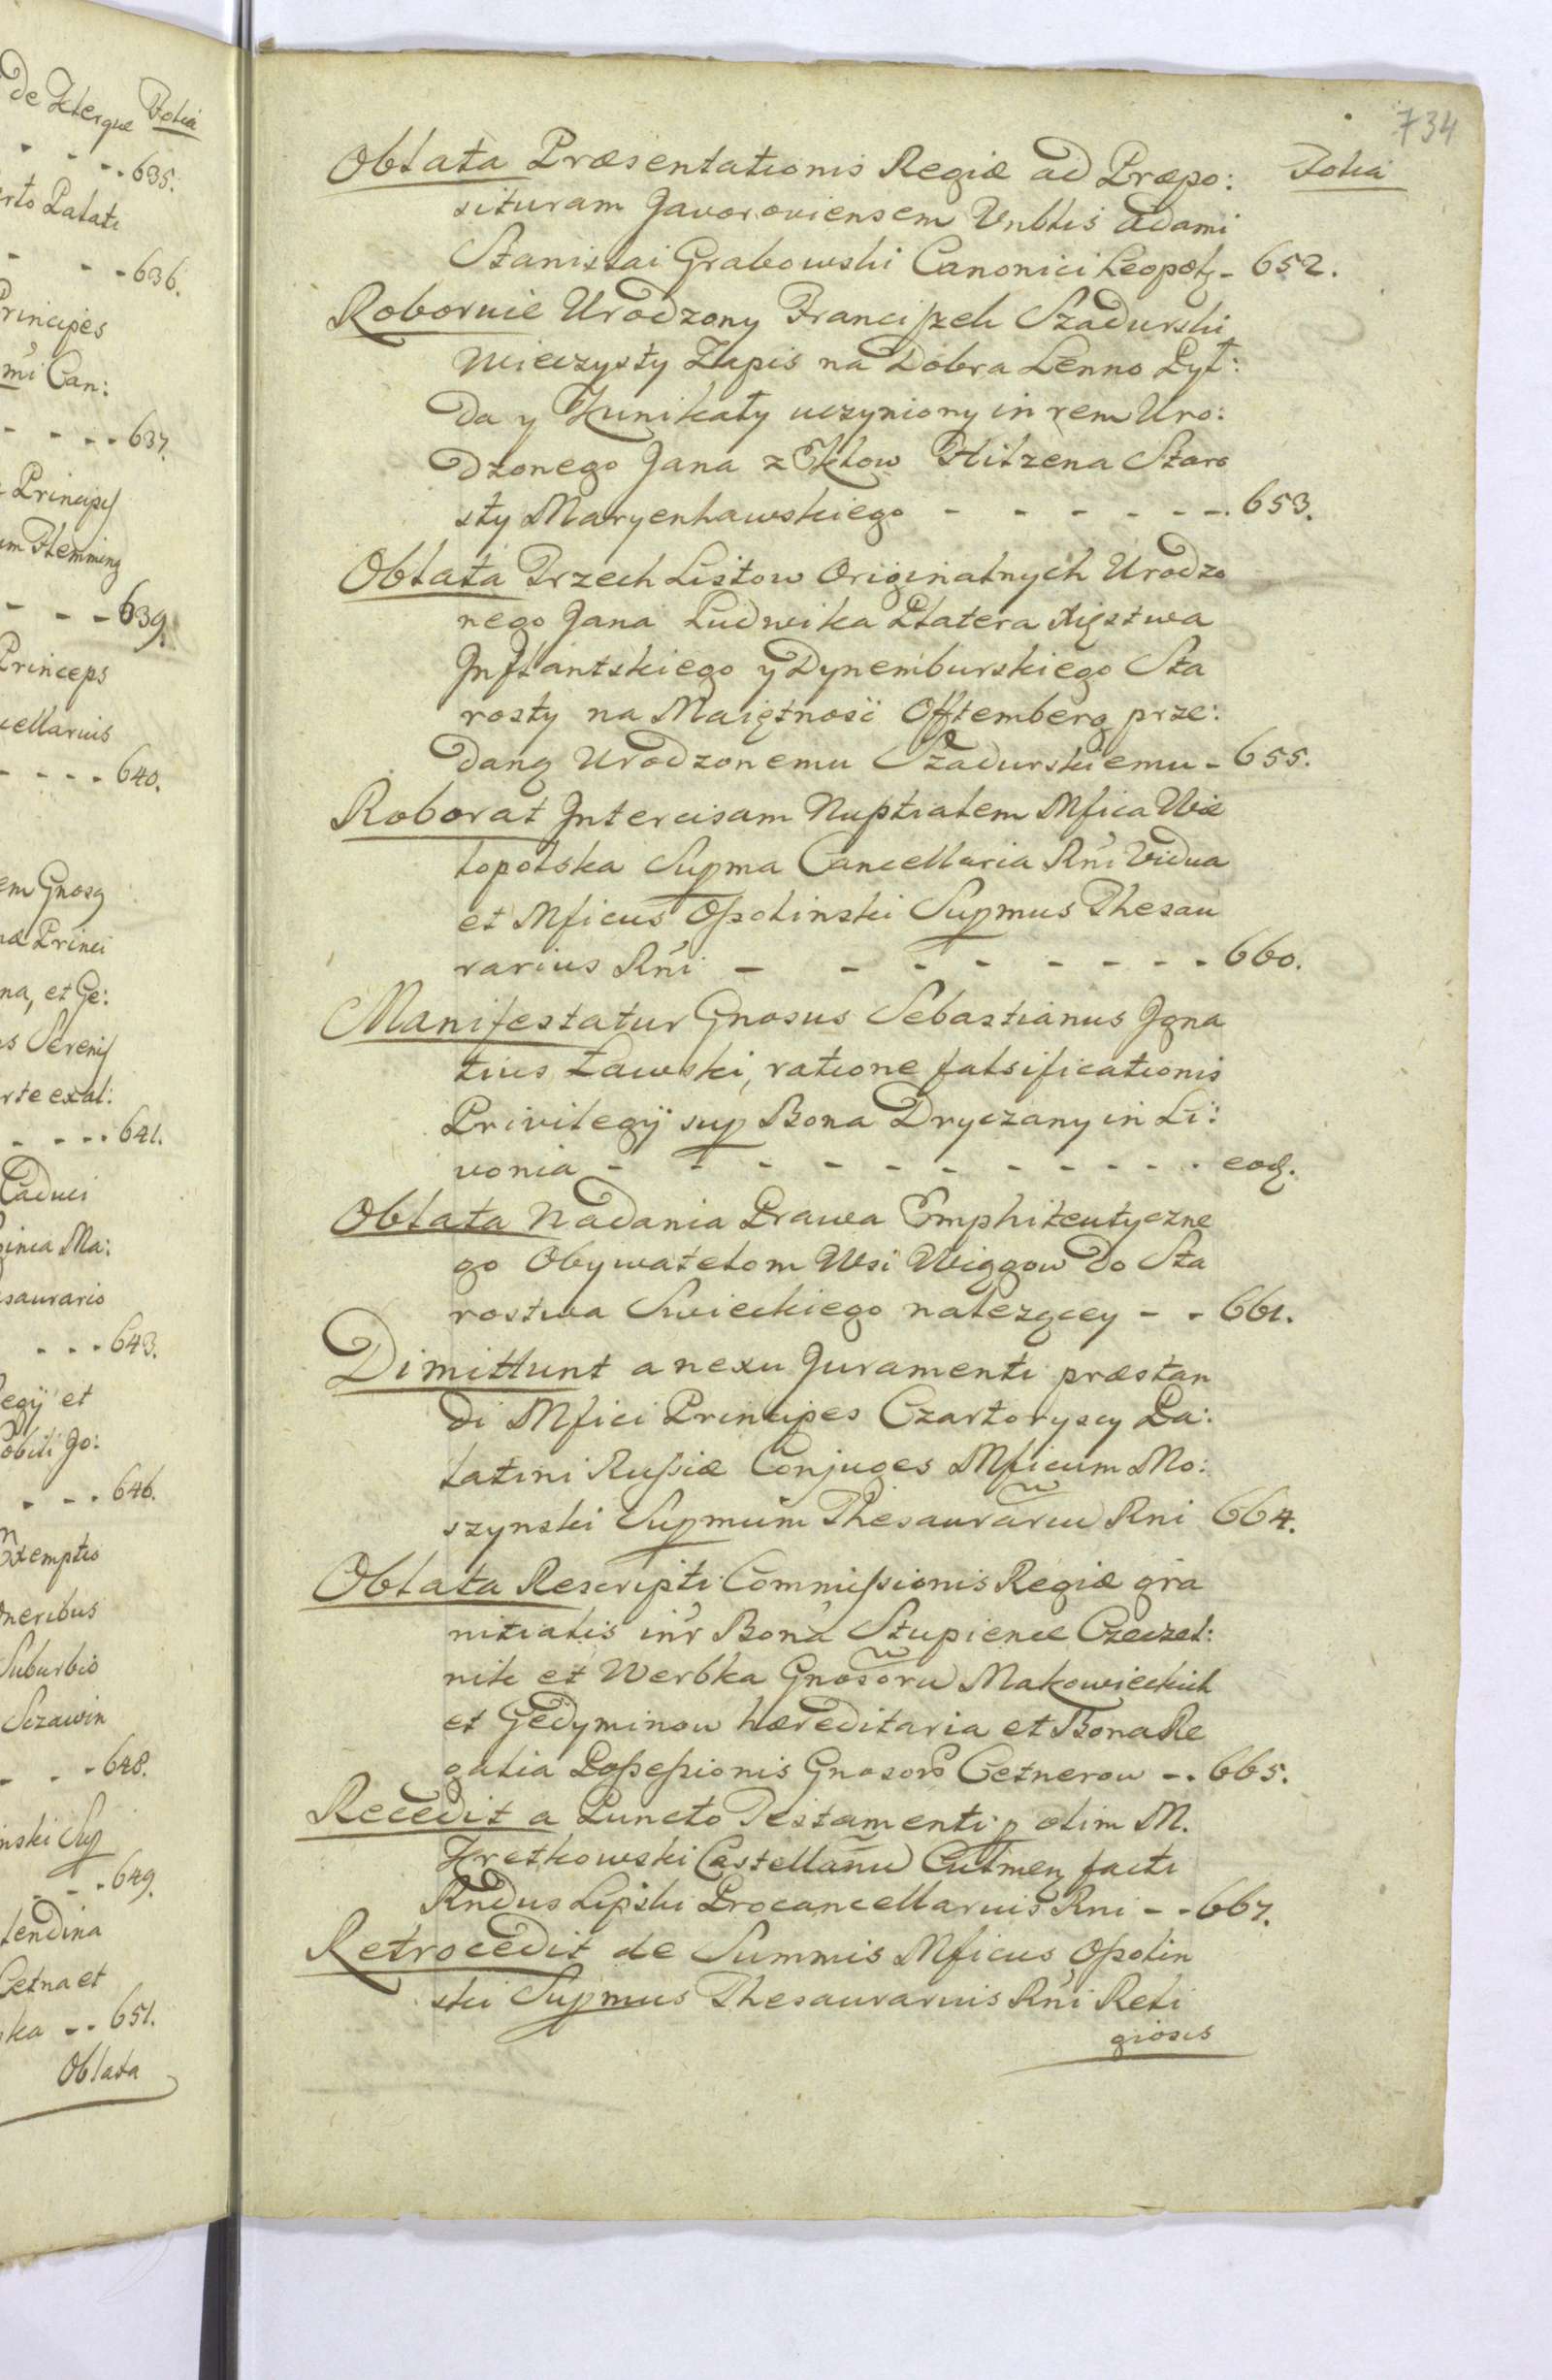 De Et erque Folia
- - - - 635.
erto Palati
- - - 636.
Principes
mi Can:
- - - - 637.
Principes
um Flemming
- - - 639.
Princeps
cellarius
- - - - 640.
em Gnosq
na Princi
na, et Ge:
s Serenis
rte exal:
- - - - 641.
Caduci
ginca Ma:
saurario
- - - 643.
egij et
obili Jo:
- - - 646.
Exemptio
oneribus
Suburbio
Sczawin
- - - 648.
nski Sup
- - - 649.
tendina
Cetna et
ka - - 651.
Oblata
734
Folia
Oblata Præsentationis Regiæ ad Præpo:
situram Javoroviensem Vnblis Adami
Stanislai Grabowski Canonici Leopol - 652.
Roboruie Urodzony Franciszek Szadurski
Wieczysty Zapis na Dobra Lenno Pył:
da y Kunikały uczyniony in rem Uro:
dzonego Jana z Eklow Hilzena Staro
sty Maryenhawskiego - - - - - - 653.
Oblata Trzech Listow Originalnych Urodzo
nego Jana Ludwika Platera Xięstwa
Inflantskiego y Dynemburskiego Sta
rosty na Maiętnosć Oftemberg prze:
daną Urodzonemu Szadurskiemu - 655.
Roborat Intercisam Nuptialem Mfica Wie
lopolska Supma Cancellaria Rni Vidua
et Mficus Ossolinski Supmus Thesau
rarius Rni - - - - - - - - 660.
Manifestatur Gnosus Sebastianus Igna
tius Ławski, ratione falsificationis
Privilegij sup Bona Dryczany in Li:
vonia - - - - - - - - - - - eod.
Oblata Nadania Prawa Emphiteutyczne
go Obywatelom Wsi Wiągow do Sta
rostwa Swieckiego należącey - - 661.
Dimittunt a nexu Juramenti præstan
di Mfici Principes Czartoryscy Pa:
latini Russiæ Conjuges Mficum Mo:
szynski Supmum Thesaurariu Rni 664.
Oblata Rescripti Commissionis Regiæ gra
nitialis inr Bona Stupience Czeczel:
nik et Werbka Gnosoru Makowieckich
et Gedyminow hæreditaria et Bona Re
galia Possessionis Gnosoro Cetnerow - . 665.
Recedit a Puncto Testamenti p olim M.
Kretkowski Castellanu Culmen facti
Rndus Lipski Procancellarius Rni - - 667.
Retrocedit de Summis Mficus Ossolin
ski Supmus Thesaurarius Rni Reli
giosis